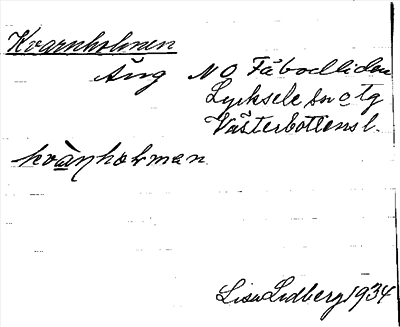 Kvarnholmen
Äng NO Fäbodliden
Lycksele sn o tg
Västerbottens l.
kvànholman
Lisa Lidberg 1934